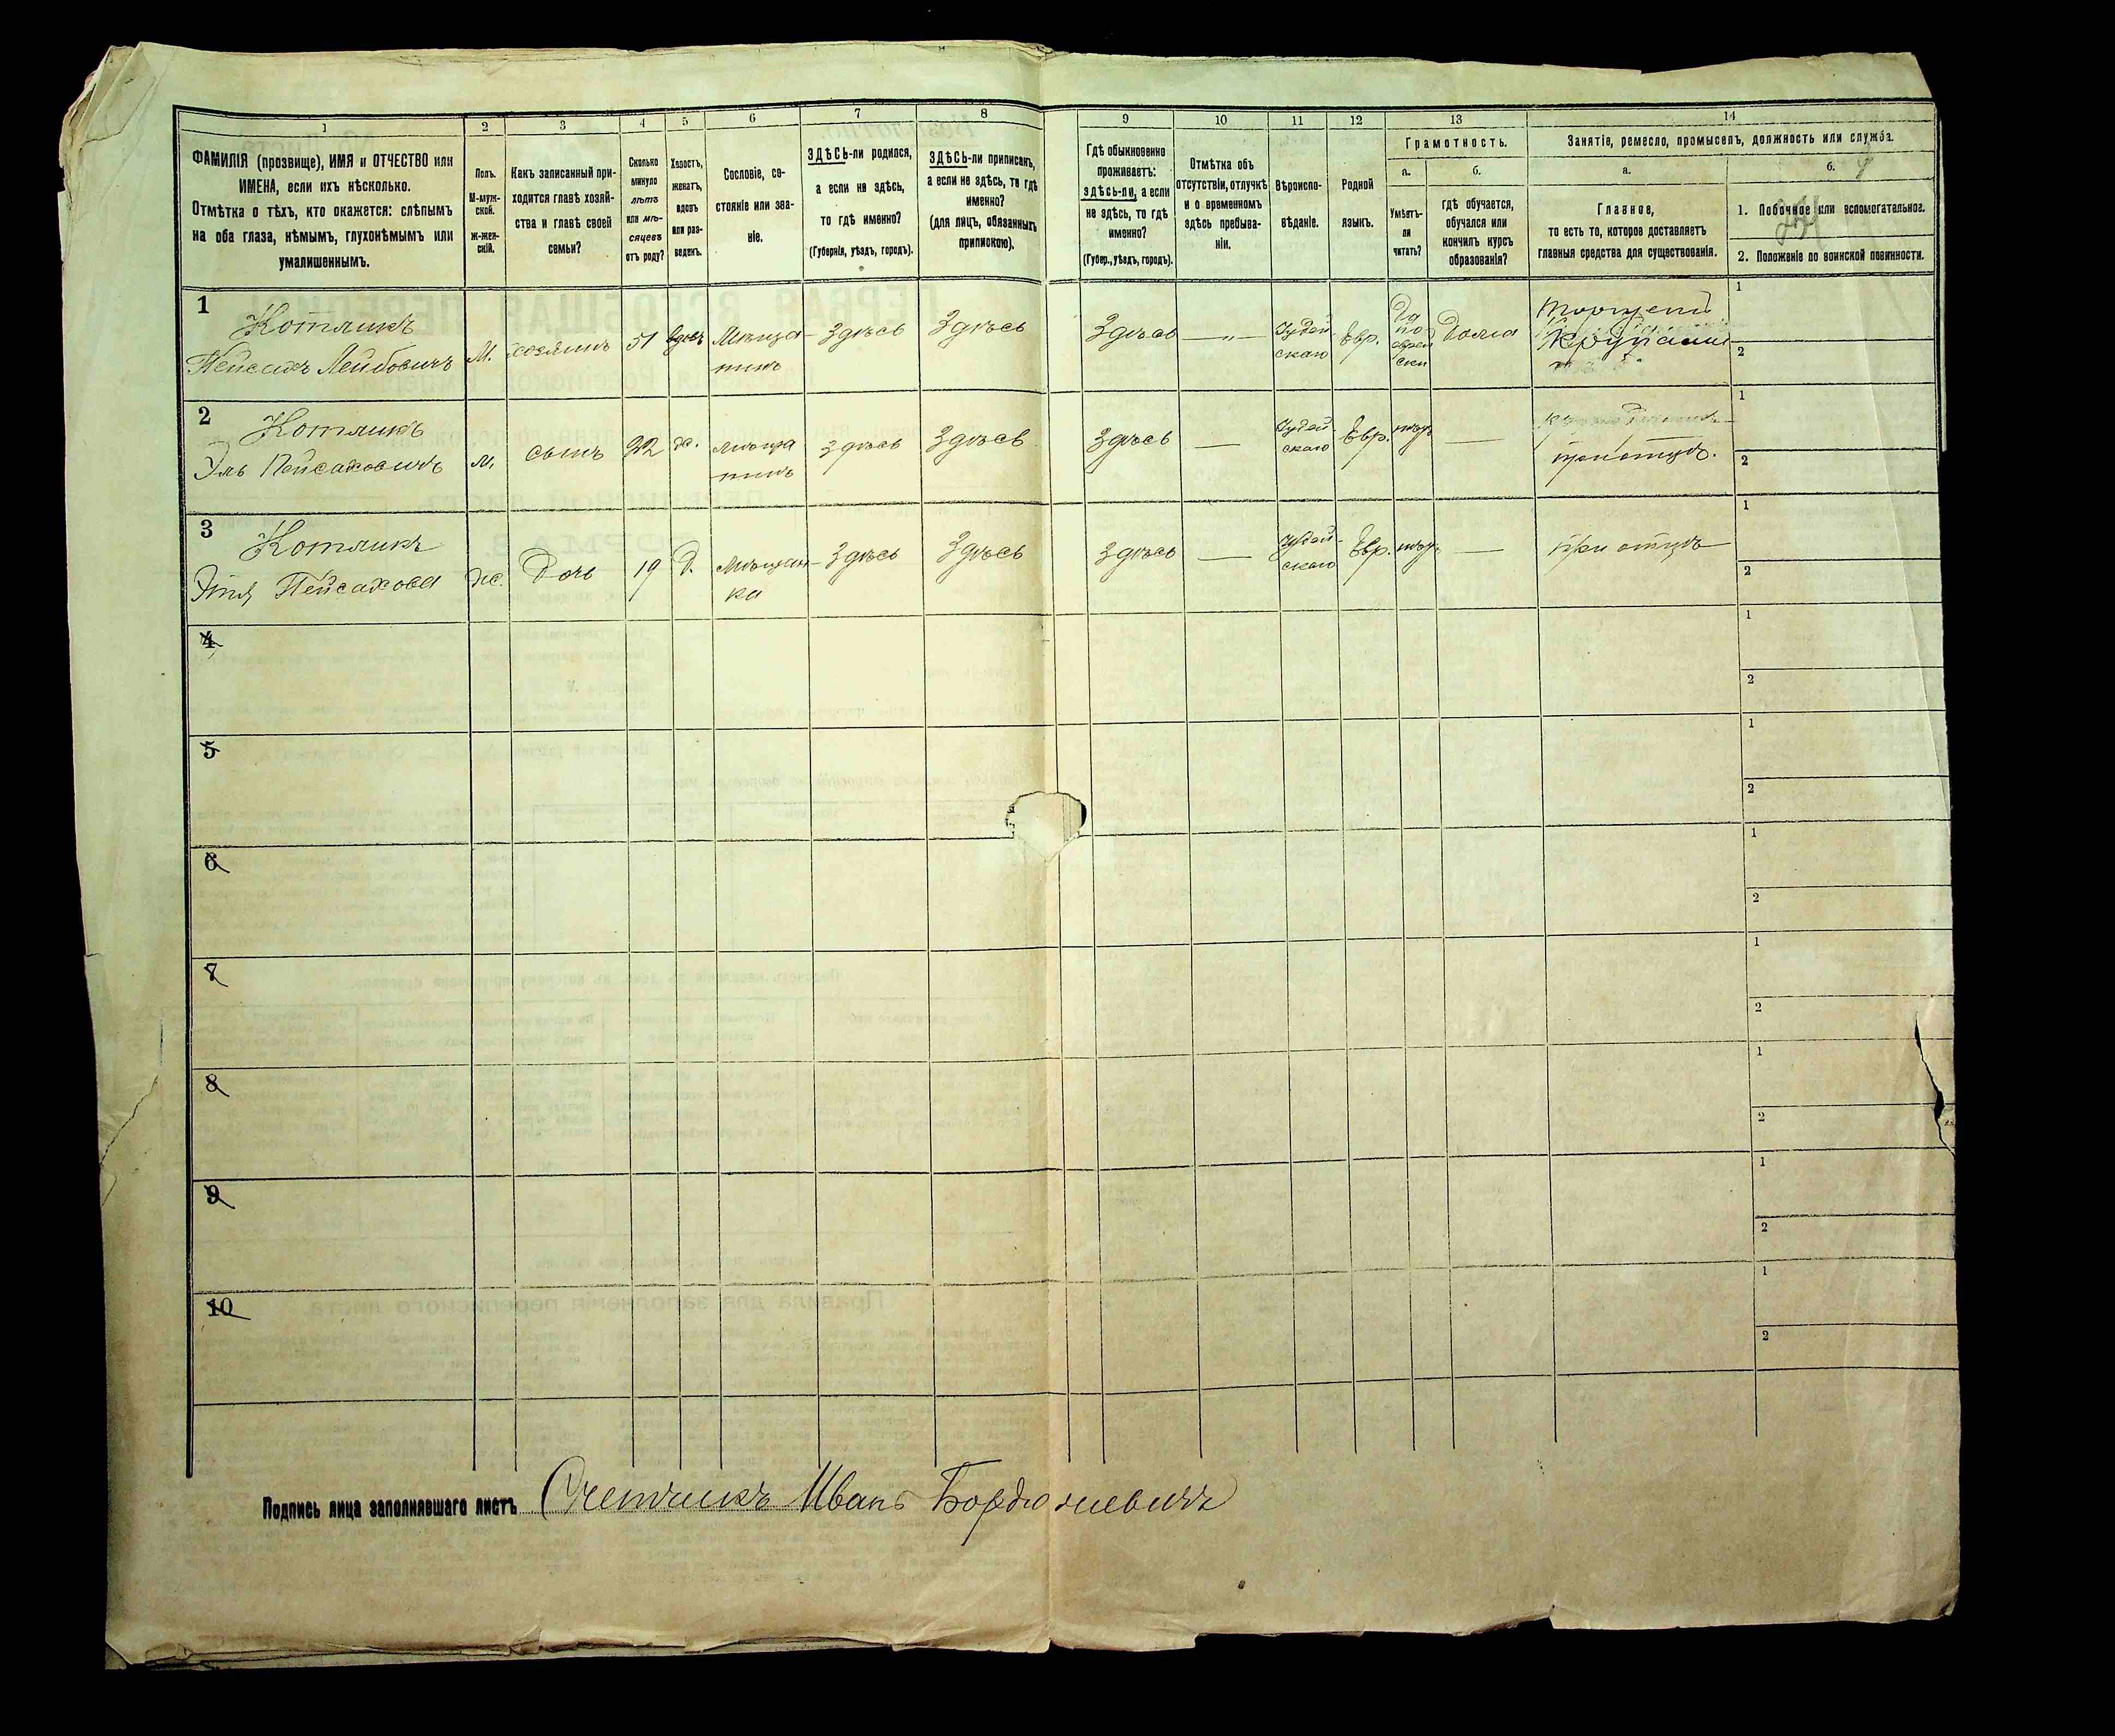 1
2
3
4
5
6
7
8
9
10
11
12
13
14
ФАМИЛІЯ (прозвище), ИМЯ и ОТЧЕСТВО или
ИМЕНА, если ихъ нѣсколько.
Отмѣтка о тѣхъ, кто окажется: слѣпымъ
на оба глаза, нѣмымъ, глухонѣмымъ или
умалишеннымъ.
Полъ.
М-муж-
ской.
ж-жен-
скій.
Какъ записанный при-
ходится главѣ хозяй-
ства и главѣ своей
семьи?
Сколько
минуло
лѣтъ
или мѣ-
сяцевъ
отъ роду?
Холостъ,
женатъ,
вдовъ
или раз-
веденъ.
Сословіе, со-
стояніе или зва-
ніе.
ЗДѢСЬ-ли родился,
а если не здѣсь,
то гдѣ именно?
(Губернія, уѣздъ, городъ).
ЗДѢСЬ-ли приписанъ,
а если не здѣсь, то гдѣ
именно?
(для лицъ, обязанныхъ
припискою).
Гдѣ обыкновенно
проживаетъ:
здѣсь-ли, а если
не здѣсь, то гдѣ
именно?
(Губер., уѣздъ, городъ).
Отмѣтка объ
отсутствіи, отлучкѣ
и о временномъ
здѣсь пребыва-
ніи.
Вѣроиспо-
вѣданіе.
Родной
языкъ.
Грамотность.
а.
Умѣетъ-
ли
читать?
б.
гдѣ обучается,
обучался или
кончилъ курсъ
образованія?
Занятіе, ремесло, промыселъ, должность или служба.
а.
Главное,
то есть то, которое доставляетъ
главныя средства для существованія.
б.
1. Побочное или вспомогательное.
2. Положеніе по воинской повинности.
1
Котликъ
Пейсахъ Лейбовичъ
М.
хозяинъ
51
вдовъ
Мѣща-
нинъ
Здѣсь
Здѣсь
Здѣсь
—"—
Іудей-
скаго
Евр.
Да
по
еврей
ски
Дома
Торгуетъ
Крупами
1
2
2
Котликъ
Эль Пейсаховичъ
м.
сынъ
22
х.
мѣща
нинъ
здѣсь
Здѣсь
Здѣсь
—
Іудей-
скаго
Евр.
—
при отцѣ.
1
2
3
Котликъ
Этя Пейсахова
ж.
Дочь
19
Д.
Мѣщан-
ка
Здѣсь
Здѣсь
Здѣсь
—
Іудей-
скаго
Евр.
—
при отцѣ
1
2
4
1
2
5
1
2
6
1
2
7
1
2
8
1
2
9
1
2
10
1
2
Подпись лица заполнявшаго листъ Счетчикъ Иванъ